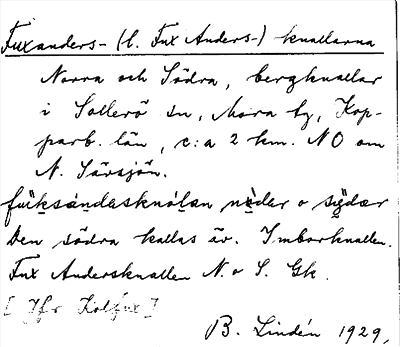 Fuxanders- (l. Fux Anders-) knallarna
Norra och Södra, bergknallar
i Sollerö sn, Mora by, Kop-
parb. län, c:a 2 km. NO om
N. Särsjön.
o
Den södra kallas äv. Imborknallen.
Fux Andersknallen N. o S. Gk.
[Jfr Kolfux]
B. Lindén 1929.